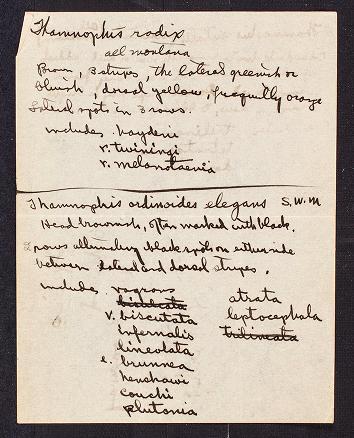 Thamnophis radix
all montana
Brown, 3 stripes, the lateral greenish or
bluish, dorsal yellow, frequently orange
Lateral spots in 3 rows.
includes haydeni
v. twiningi
v. melanotaenia
Thamnophis ordinoides elegans S.W.M
Head brownish, often marked with black.
2 rows alternating black spots on either side
between lateral and dorsal stripes.
includes vagrans
biscutata
v. biscutata
infernalis
lineolata
e. brunnea
henshawi
couchi
plutonia
atrata
leptocephala
trilineata